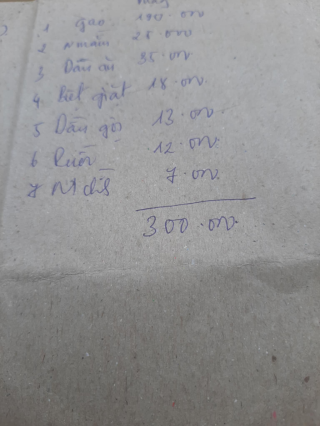 1 gạo 190.000
2 nmắm 25.000
3 Dầu ăn 35.000
4 Bột giặt 18.000
5 Dầu gội 13.000
6 12.000
7 7.000
300.000